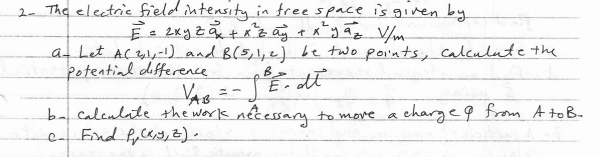 2- The electric field intensity in free space is given by
E⃗ = 2xyz a⃗x + x²z a⃗y + x²y a⃗z V/m
a- Let A(2,1,-1) and B(5,1,2) be two points, calculate the
potential difference
V_AB = - ∫_A^B E⃗. dl⃗
b- calculate the work necessary to move a charge Q from A to B-
c- Find ρv(x,y,z).